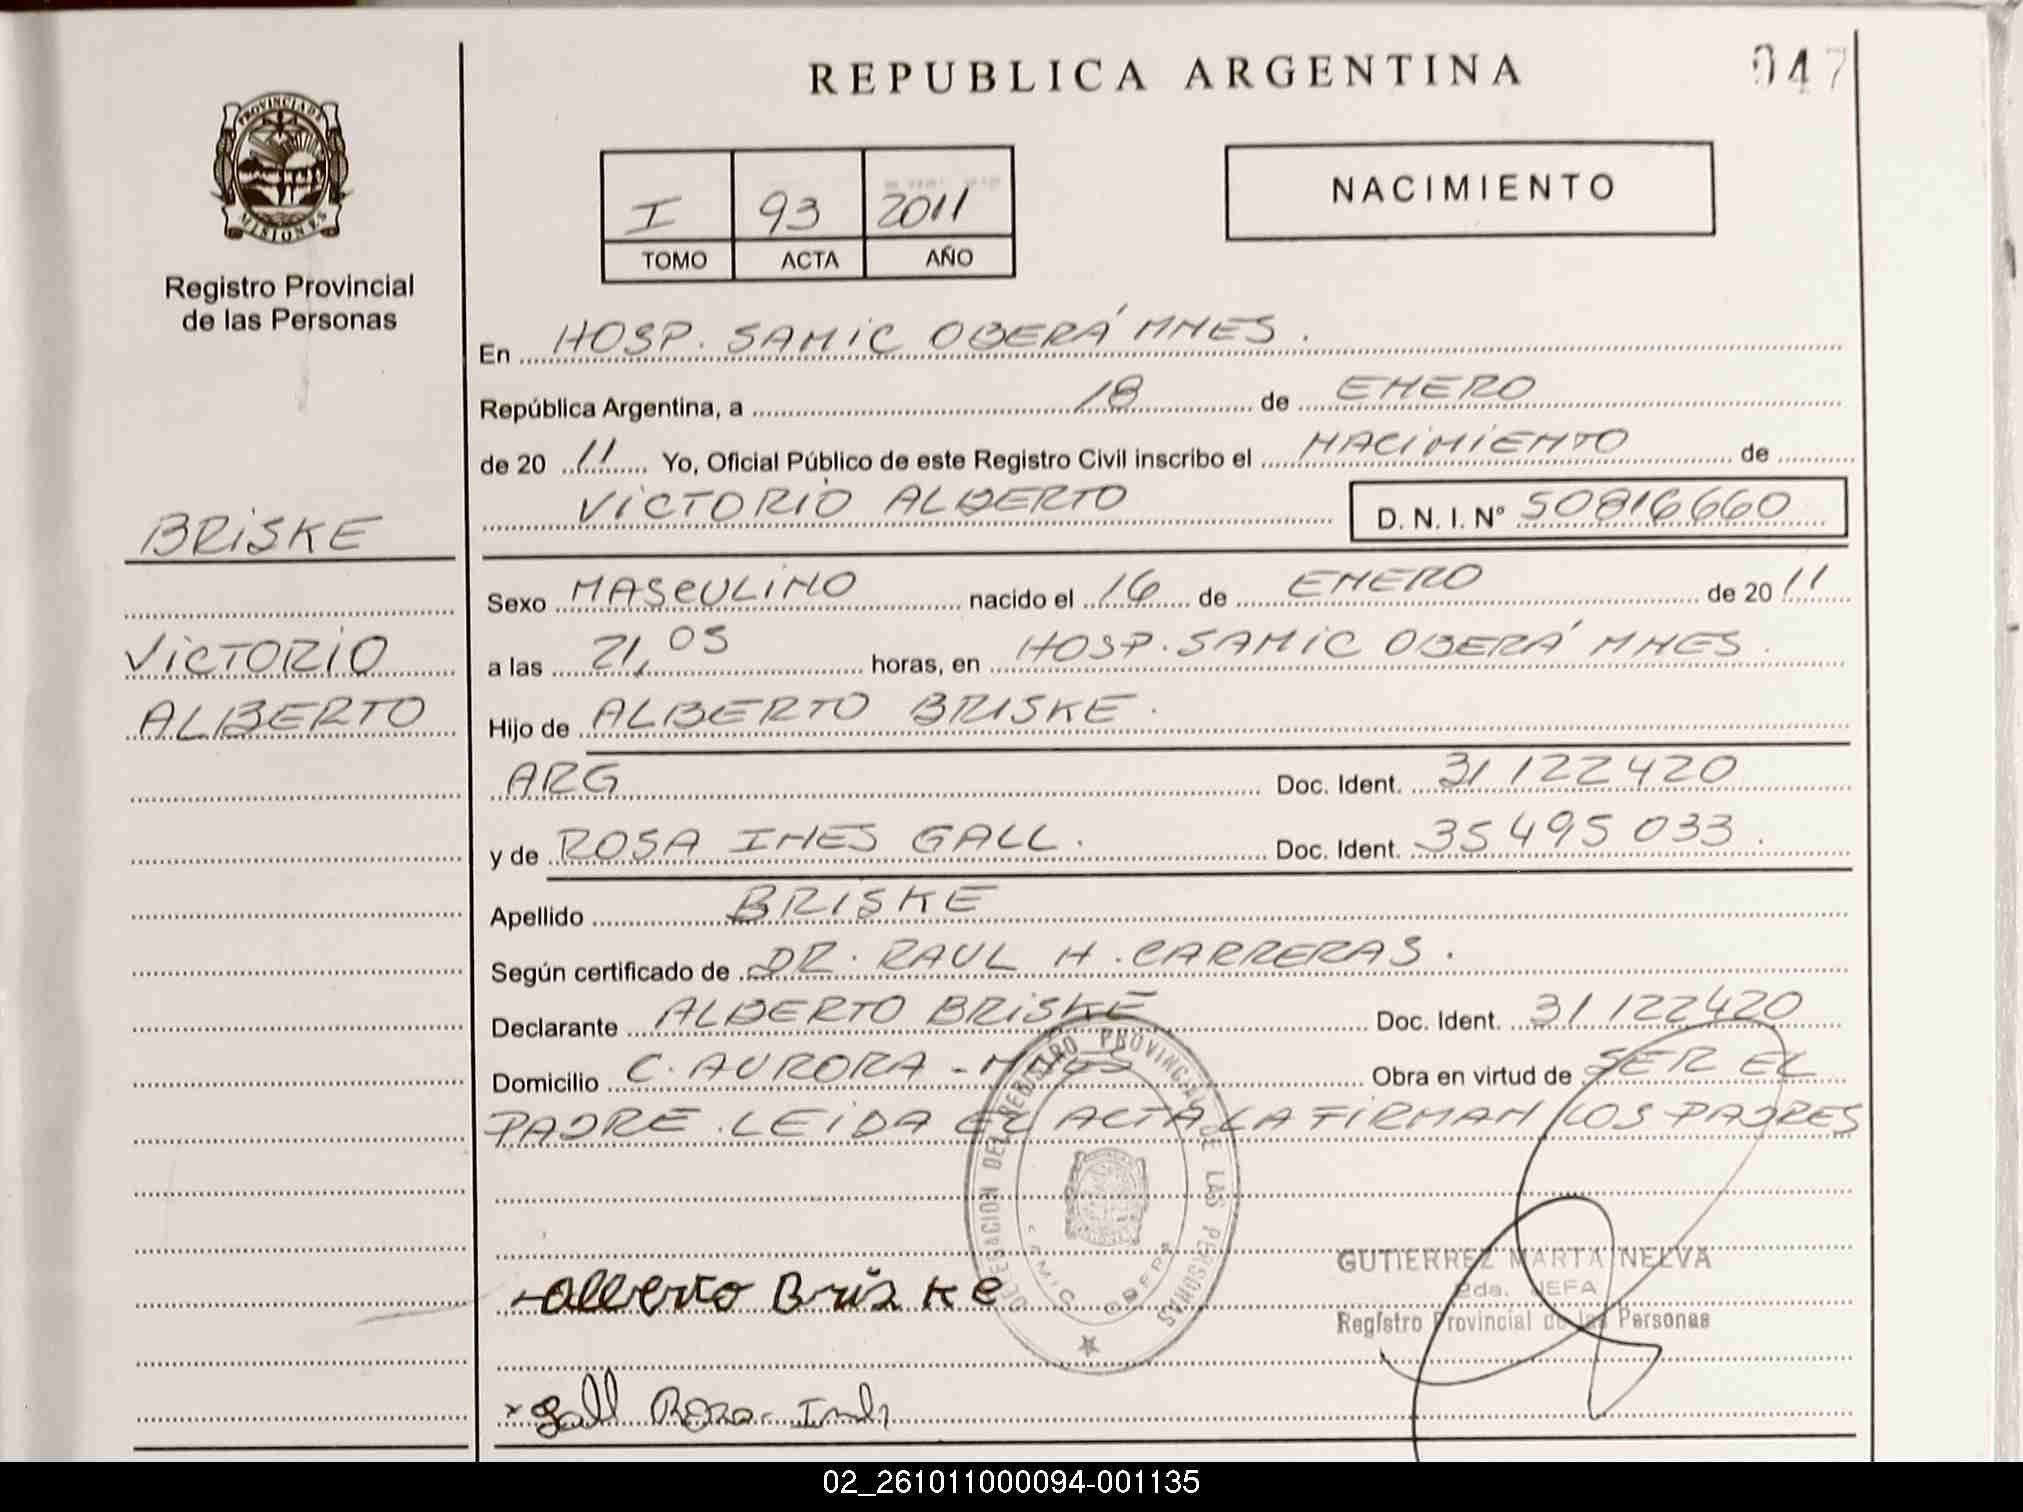 REPUBLICA ARGENTINA
047
PROVINCIA DE MISIONES
Registro Provincial
de las Personas
I 93 2011
TOMO ACTA AÑO
NACIMIENTO
En HOSP. SAMIC OBERÁ MNES.
República Argentina, a 18 de ENERO
de 20 11 Yo, Oficial Público de este Registro Civil inscribo el NACIMIENTO de
VICTORIO ALBERTO D. N. I. Nº 50816660
BRISKE
VICTORIO
ALBERTO
Sexo MASCULINO nacido el 16 de ENERO de 20 11
a las 21,05 horas, en HOSP. SAMIC OBERÁ MNES.
Hijo de ALBERTO BRISKE.
ARG Doc. Ident. 31122420
y de ROSA INES GALL. Doc. Ident. 35495033.
Apellido BRISKE
Según certificado de DR. RAUL H. CARRERAS.
Declarante ALBERTO BRISKE Doc. Ident. 31122420
Domicilio C. AURORA - MNES Obra en virtud de SER EL
PADRE. LEIDA EL ACTA LA FIRMAN LOS PADRES
DELEGACION DEL REGISTRO PROVINCIAL DE LAS PERSONAS
OBERA
GUTIERREZ MARTA NELVA
2da. JEFA
Registro Provincial de las Personas
Alberto Briske
Gall Rosa Inés
02_261011000094-001135